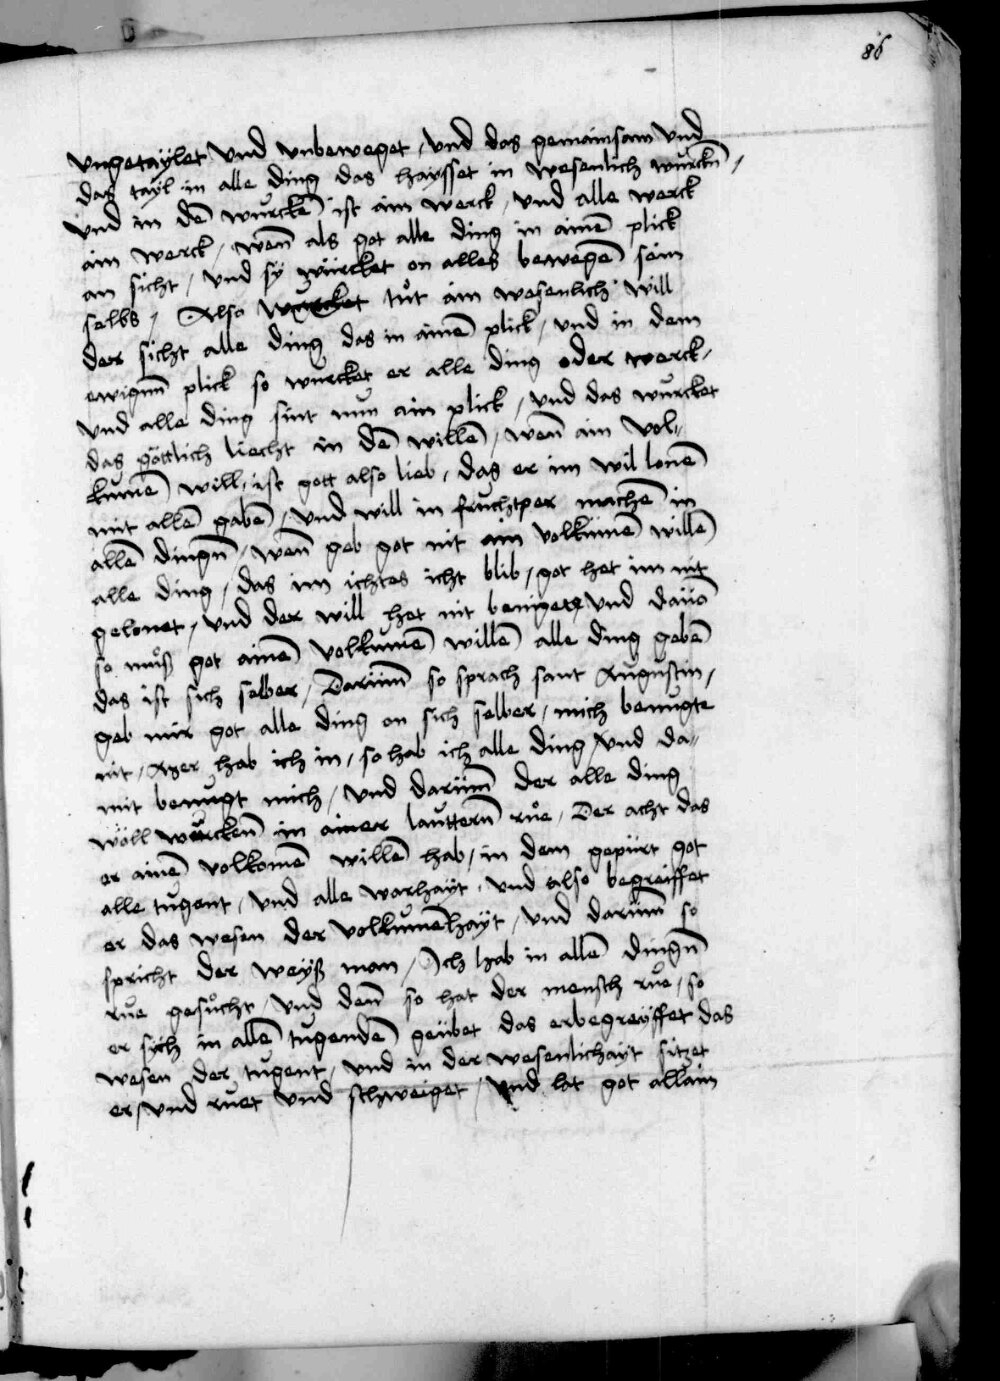 86
ungetaÿlet und unbeweget / und das gemainsam und
das taÿl in alle ding das haÿsset in wesenlich wurckn̄ /
und in dē wurckē ist ain werck / und alle werck
ain werck / wen̄ als got alle ding in ainē plick
an sicht / und sÿ würcket on alles bewegē sein
selbs / Also tůt ain wesenlich will
der sicht alle ding das in ainē plick / und in dem
ewigm̄ plick so wurcket er alle ding oder werck /
und alle ding sint nun ain plick / und das wurcket
das göttlich liecht in dē willē / wen̄ ain vol„
kumē will / ist gott also lieb / das er im wil lonē
mit allē gabē / und will in fruchtper machē in
allē dingn̄ / wen̄ geb got nit ain volkumē willē
alle ding / das im ichtes icht blib / got het im nit
gelonet / und der will het nit benügez und dauō
so můß got ainē volkumē willē alle ding gebē
das ist sich selber / Darüm̄ so sprach sant Augustin /
geb mir got alle ding on sich selber / mich benugte
nit / Aber hab ich in / so hab ich alle ding und da„
mit benugt mich / und darüm̄ der alle ding
wöll wurcken in ainer lauttern̄ růe / Der acht das
er ainē volkomē willē hab / in dem gepürt got
alle tugent / und alle warhaÿt / und also begreiffet
er das wesen der volkumēhaÿt / und darüm̄ so
spricht der weÿß man / Ich hab in allē dingn̄
růe gesůcht / und den̄ so hat der mensch růe / so
er sich in allē tugendē geübet das er begreÿffet das
wesen der tugent / und in der wesenlichaÿt sitzet
er / und ruet und schweiget / und lat got allain